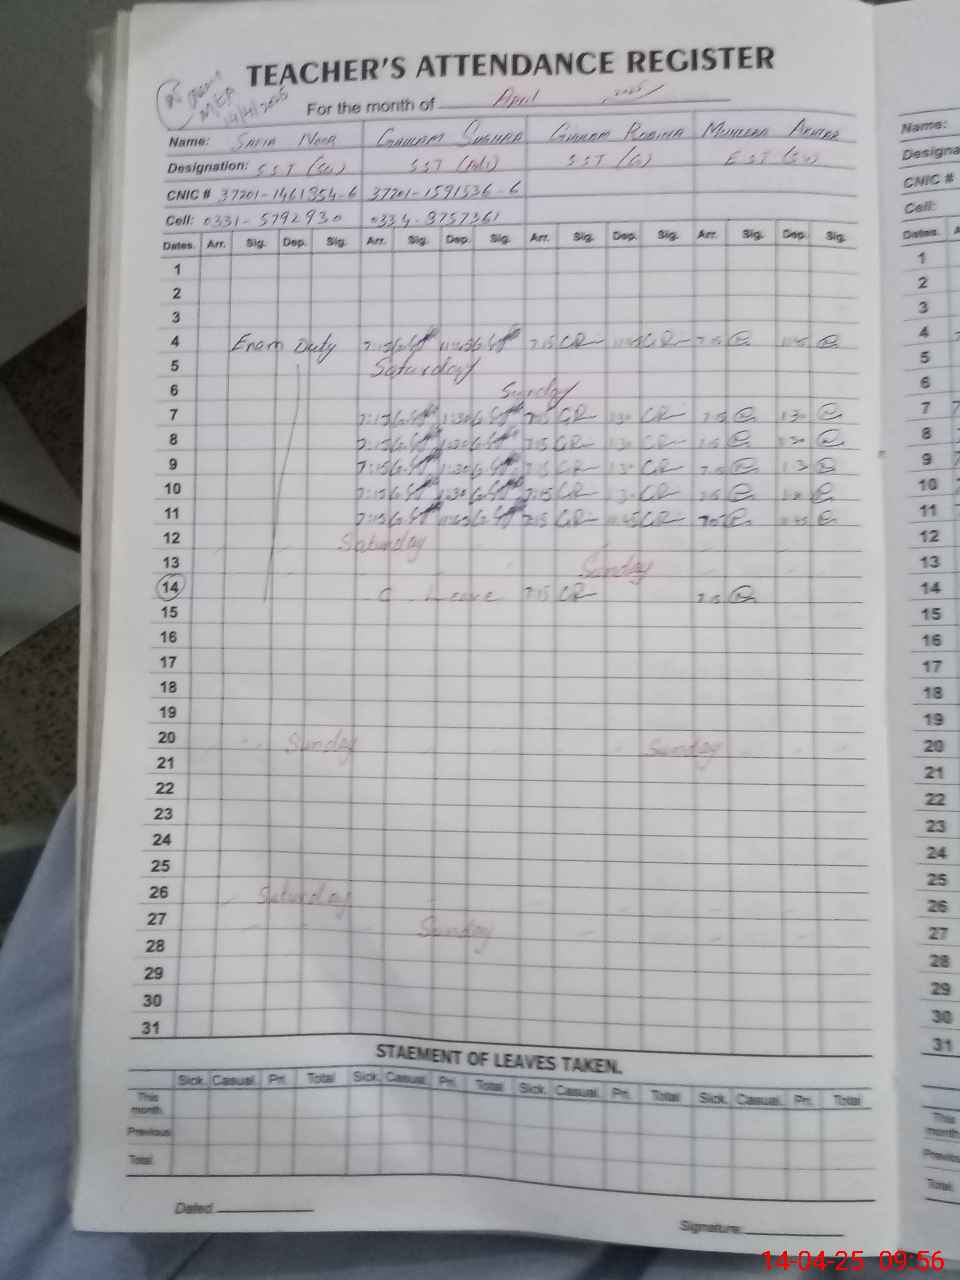 TEACHER'S ATTENDANCE REGISTER
MEA
14/4/2025
For the month of April 2025
Name: Safia Noor Ghulam Sughra Ghulam Robina Muneera Akhtar
Designation: SST (Sci) SST SST EST
CNIC # 37201-1461354-6 37201-1591536-6
Cell: 0331-5792930 0334-8757361
Dates. Arr. Sig. Dep. Sig. Arr. Sig. Dep. Sig. Arr. Sig. Dep. Sig. Arr. Sig. Dep. Sig.
1
2
3
4 Exam Duty 7:15 11:45 7:15 GR 11:45 GR 7:15 11:45
5 Saturday
6 Sunday
7 7:15 1:30 7:15 GR 1:30 GR 7:15 1:30
8 7:15 1:30 7:15 GR 1:30 GR 7:15 1:30
9 7:15 1:30 7:15 GR 1:30 GR 7:15 1:30
10 7:15 1:30 7:15 GR 1:30 GR 7:15 1:30
11 7:15 11:45 7:15 GR 11:45 GR 7:15 11:45
12 Saturday
13 Sunday
14 C. Leave 7:15 GR 7:15
15
16
17
18
19
20 Sunday Sunday
21
22
23
24
25
26 Saturday
27 Sunday
28
29
30
31
STAEMENT OF LEAVES TAKEN.
Sick. Casual. Pri. Total Sick. Casual. Pri. Total Sick. Casual. Pri. Total Sick. Casual. Pri. Total
This month.
Previous
Total.
Dated.
Signature:
Name:
Designa
CNIC #
Cell:
Dates.
1
2
3
4
5
6
7
8
9
10
11
12
13
14
15
16
17
18
19
20
21
22
23
24
25
26
27
28
29
30
31
This
month
Previou
Total.
14-04-25 09:56